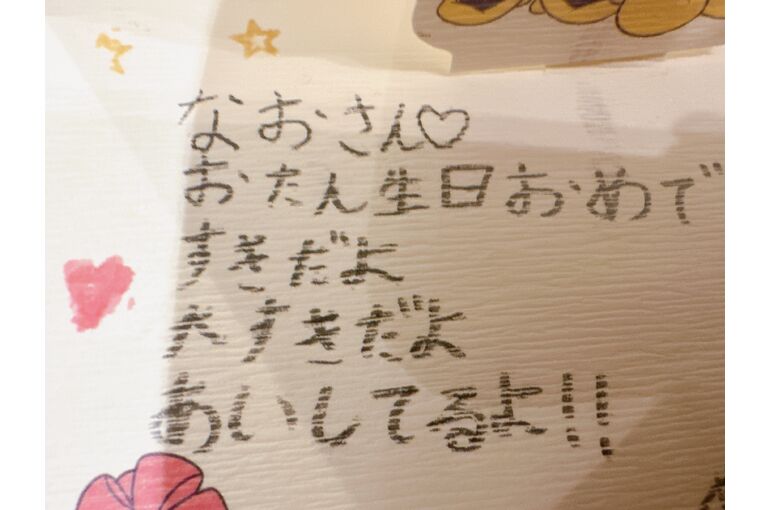 なおさん♡
おたん生日おめで
すきだよ
大すきだよ
あいしてるよ!!